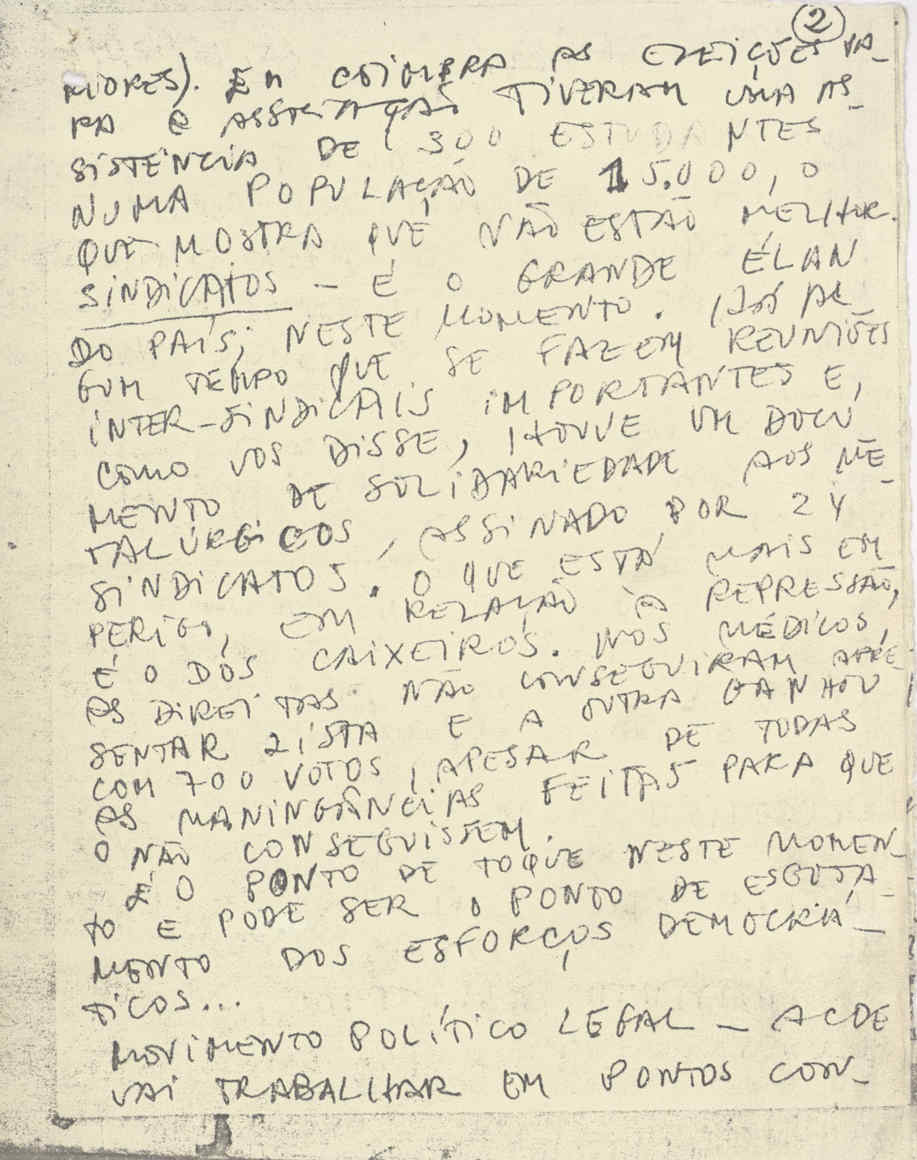 2
RIORES). EM COIMBRA AS ELEIÇÕES PA-
RA A ASSOCIAÇÃO TIVERAM UMA AS-
SISTÊNCIA DE 300 ESTUDANTES
NUMA POPULAÇÃO DE 15.000, O
QUE MOSTRA QUE NÃO ESTÃO MELHOR.
SINDICATOS - É O GRANDE ÉLAN
DO PAÍS, NESTE MOMENTO. HÁ AL
GUM TEMPO QUE SE FAZEM REUNIÕES
INTER-SINDICAIS IMPORTANTES E,
COMO VOS DISSE, HOUVE UM DOCU
MENTO DE SOLIDARIEDADE AOS ME-
TALÚRGICOS, ASSINADO POR 24
SINDICATOS. O QUE ESTÁ MAIS EM
PERIGO, EM RELAÇÃO À REPRESSÃO,
É O DOS CAIXEIROS. NOS MÉDICOS,
AS DIREITAS NÃO CONSEGUIRAM APRE
SENTAR LISTA E A OUTRA GANHOU
COM 700 VOTOS, APESAR DE TODAS
AS MANINGÂNCIAS FEITAS PARA QUE
O NÃO CONSEGUISSEM.
É O PONTO DE TOQUE NESTE MOMEN-
TO E PODE SER O PONTO DE ESGOTA-
MENTO DOS ESFORÇOS DEMOCRÁ-
TICOS...
MOVIMENTO POLÍTICO LEGAL - A CDE
VAI TRABALHAR EM PONTOS CON-